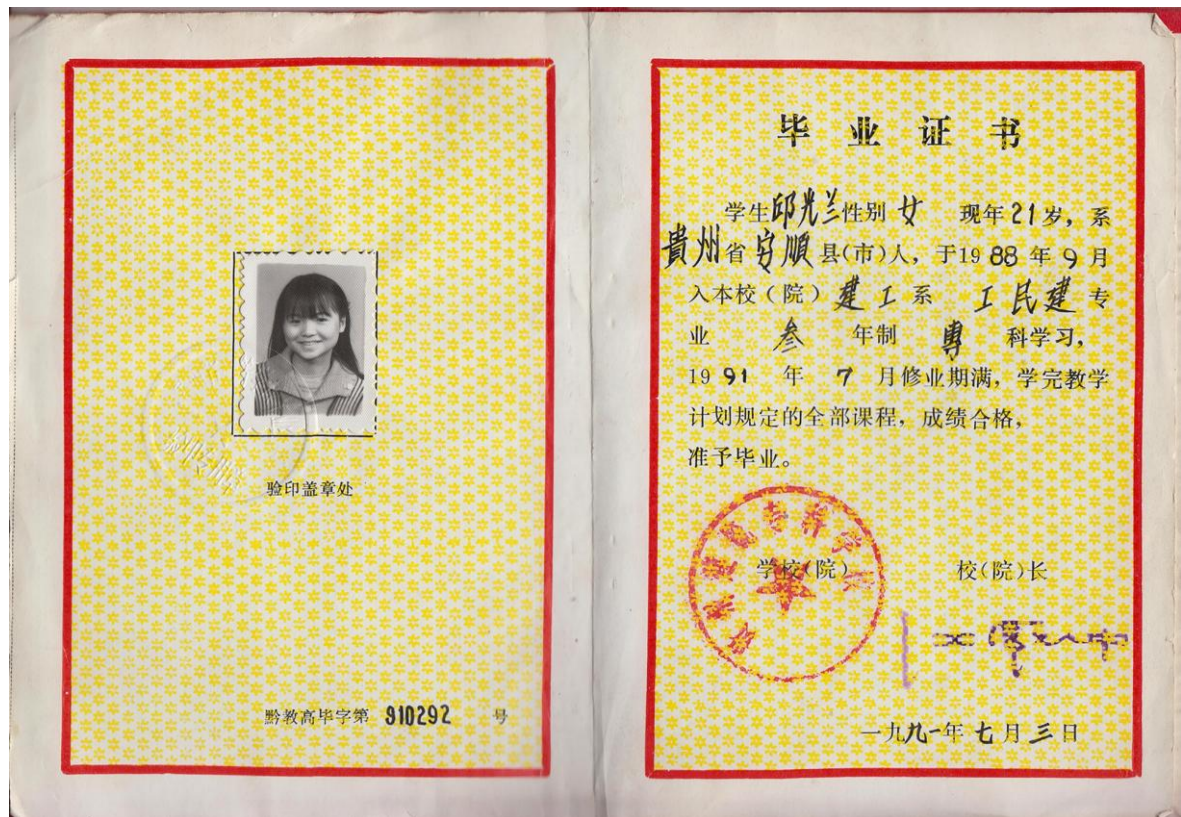 验印盖章处
黔教高毕字第 910292 号
毕业证书
学生邱光兰性别女 现年21岁，系
貴州省安順县(市)人，于1988年9月
入本校（院）建工系 工民建专
业 叁 年制 專 科学习，
1991 年 7 月修业期满，学完教学
计划规定的全部课程，成绩合格，
准予毕业。
学校(院) 校(院)长
一九九一年七月三日